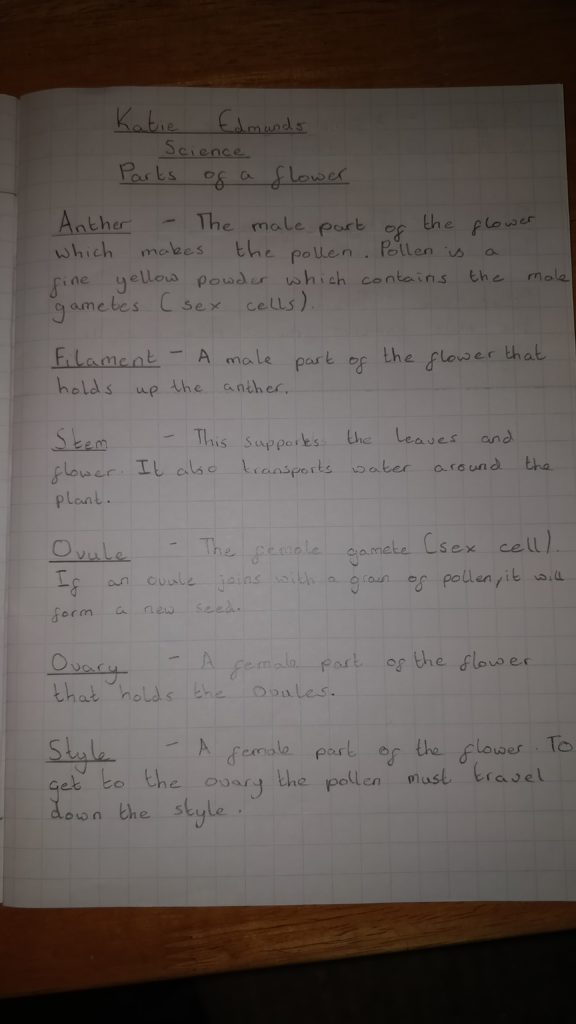 Katie Edmunds
Science
Parts of a flower
Anther - The male part of the flower
which makes the pollen. Pollen is a
fine yellow powder which contains the male
gametes (sex cells).
Filament - A male part of the flower that
holds up the anther.
Stem - This supports the leaves and
flower. It also transports water around the
plant.
Ovule - The female gamete (sex cell).
If an ovule joins with a grain of pollen, it will
form a new seed.
Ovary - A female part of the flower
that holds the ovules.
Style - A female part of the flower. To
get to the ovary the pollen must travel
down the style.